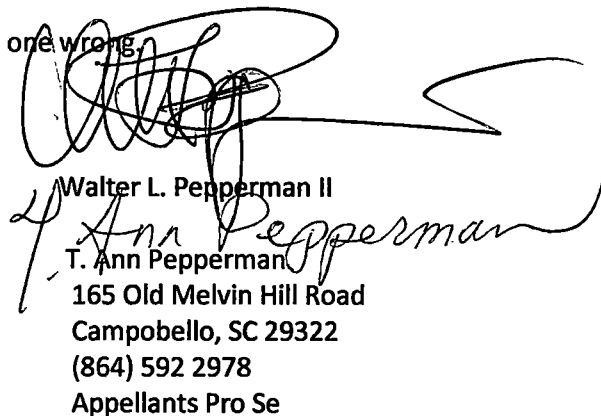 one wrong.
Walter L. Pepperman II
T. Ann Pepperman
T. Ann Pepperman
165 Old Melvin Hill Road
Campobello, SC 29322
(864) 592 2978
Appellants Pro Se